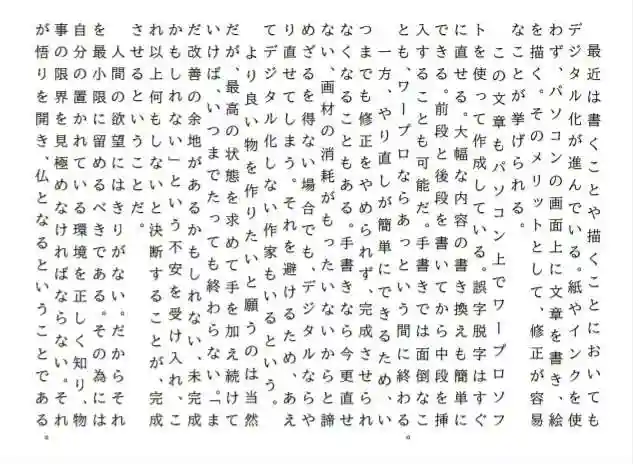 最近は書くことや描くことにおいても
デジタル化が進んでいる。紙やインクを使
わず、パソコンの画面上に文章を書き、絵
を描く。そのメリットとして、修正が容易
なことが挙げられる。
この文章もパソコン上でワープロソフ
トを使って作成している。誤字脱字はすぐ
に直せる。大幅な内容の書き換えも簡単に
できる。前段と後段を書いてから中段を挿
入することも可能だ。手書きでは面倒なこ
とも、ワープロならあっという間に終わる。
一方、やり直しが簡単にできるため、い
つまでも修正をやめられず、完成させられ
なくなることもある。手書きなら今更直せ
ない、画材の消耗がもったいないからと諦
めざるを得ない場合でも、デジタルならや
り直せてしまう。それを避けるため、あえ
てデジタル化しない作家もいるという。
より良い物を作りたいと願うのは当然
だが、最高の状態を求めて手を加え続けて
いけば、いつまでたっても終わらない。「ま
だ改善の余地があるかもしれない、未完成
かもしれない」という不安を受け入れ、こ
れ以上何もしないと決断することが、完成
させるということだ。
人間の欲望にはきりがない。だからそれ
を最小限に留めるべきである。その為には
自分の置かれている環境を正しく知り、物
事の限界を見極めなければならない。それ
が悟りを開き、仏となるということである。